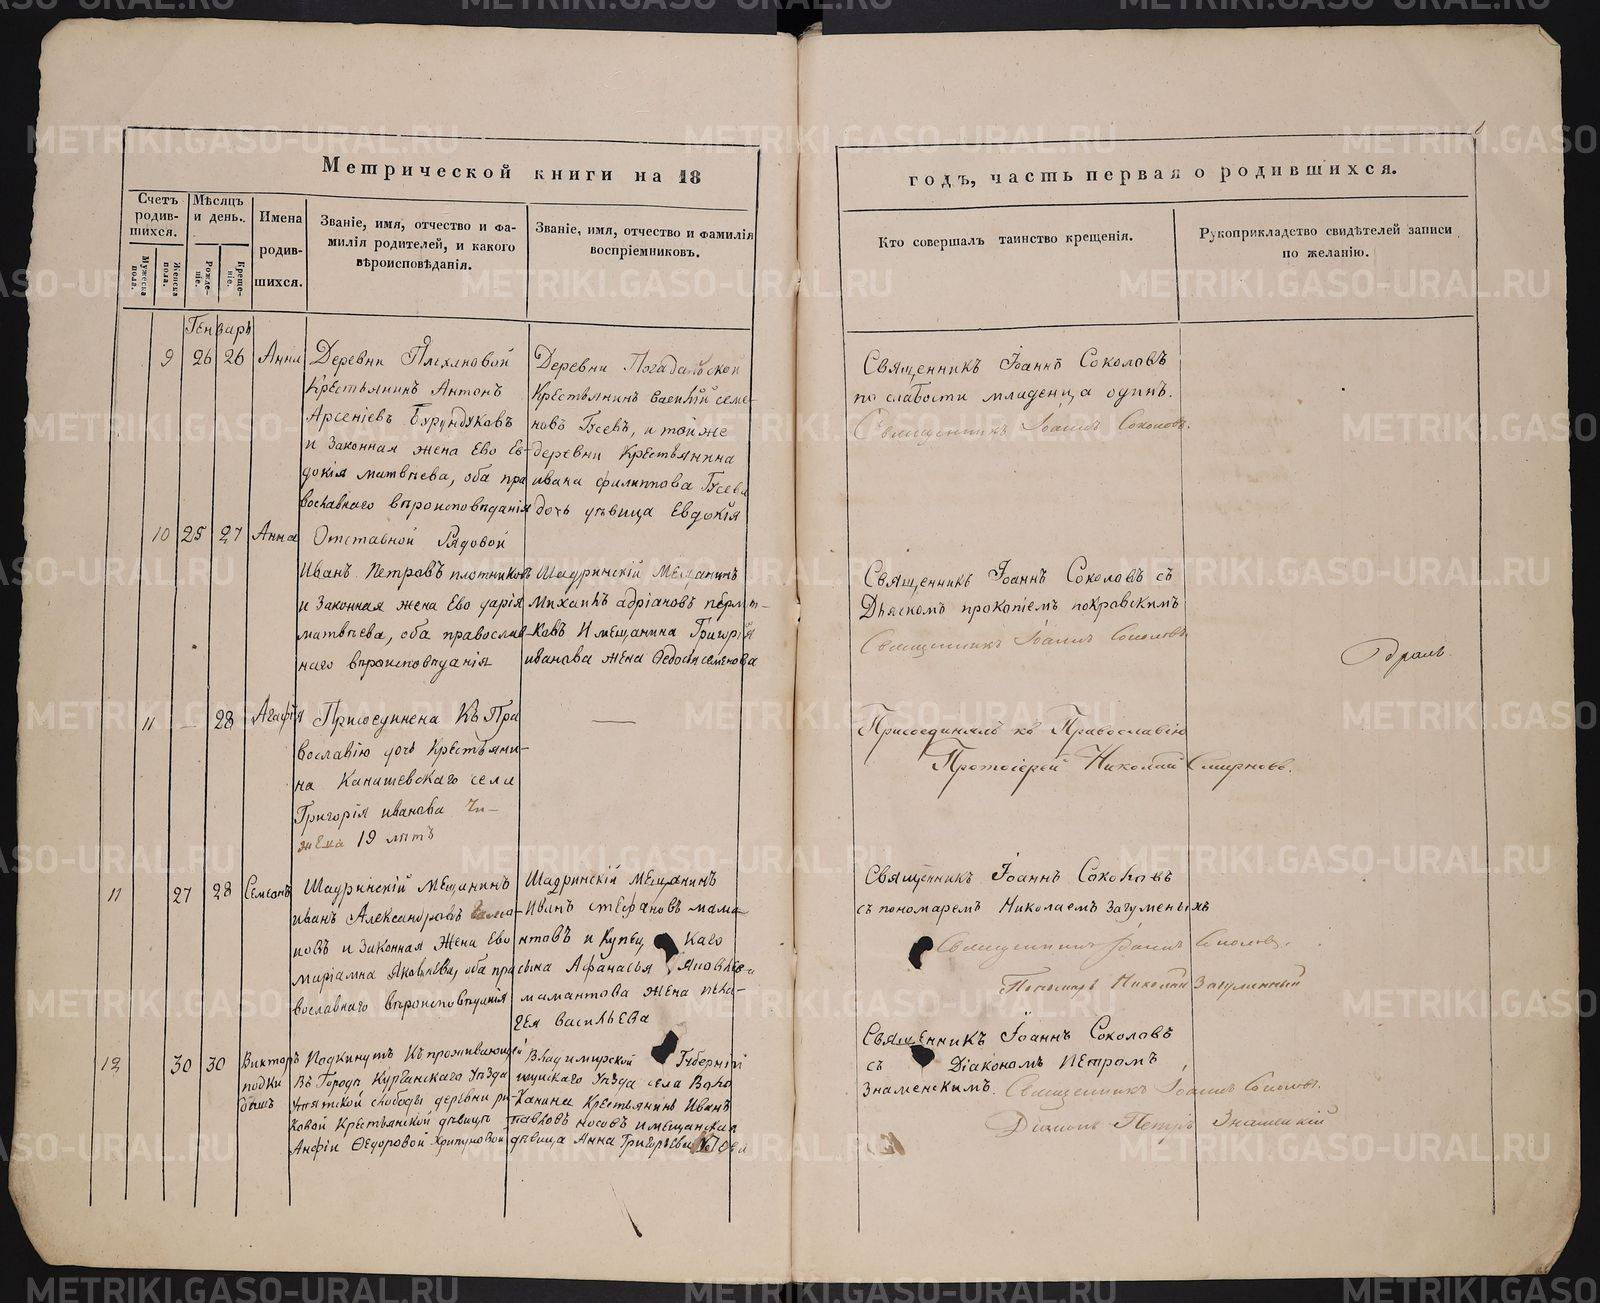 Метрической книги на 18
годъ, часть первая о родившихся.
Счетъ родив-шихся.
Мѣсяцъ и день.
Имена родив-шихся.
Званіе, имя, отчество и фа-
милія родителей, и какого
вѣроисповѣданія.
Званіе, имя, отчество и фамилія
воспріемниковъ.
Кто совершалъ таинство крещенія.
Рукоприкладство свидѣтелей записи
по желанію.
Мужеска пола.
Женска пола.
Рожде-ніе.
Креще-ніе.
Генварь
9 26 26 Анна
Деревни Плехановой
Крестьянинъ Антонъ
Арсеніевъ Бурундуковъ
и законная жена Ево Ев-
докія матвѣева, оба пра
вославнаго вѣроисповѣданія
Деревни
Крестьянинъ василій семе-
новъ Гусевъ, и тойже
деревни Крестьянина
ивана филиппова Гусева
дочь дѣвица Евдокія
Священникъ Іоаннъ Соколовъ
по слабости младенца одинъ.
Священникъ Іоаннъ Соколовъ.
10 25 27 Анна
Отставной Рядовой
Иванъ Петровъ плотниковъ
и Законная жена Ево дарія
матвѣева, оба православ
наго вѣроисповѣданія
Шадринскій Мещанинъ
Михаилъ адріановъ
ковъ И мещанина Григорія
иванова жена Федосья семенова
Священникъ Іоаннъ Соколовъ съ
Дьячкомъ прокопіемъ покровскимъ
Священникъ Іоаннъ Соколовъ
11 — 28 Агафія
Присоединена Къ Пра
вославію дочь Крестьяни-
на Канашевскаго села
Григорія иванова
19 лѣтъ
—
Присоединялъ къ Православію
Протоіерей Николай Смирновъ.
11 27 28 Симеонъ
Шадринскій Мещанинъ
иванъ Александровъ
новъ и Законная Жена Ево
маріамна Яковлева, оба пра
вославнаго вѣроисповѣданія
Шадринскій Мещанинъ
Иванъ стефановъ мама-
нтовъ и Купец каго
сына Афанасья Яковлева
мамантова жена пела-
гея васильева
Священникъ Іоаннъ Соколовъ
съ пономаремъ Николаемъ Загуменымъ
Священникъ Іоаннъ Соколовъ.
Пономарь Николай Загуменный
12 30 30 Викторъ
подки
дышъ
Подкинутъ Къ проживающей
Въ Городѣ Курганскаго Уѣзда
Утятской слободы деревни
ковой Крестьянской дѣвицѣ
Анфіи Федоровой Хрипуновой
Владимирской Губерніи
шуйскаго Уѣзда села
Крестьянинъ Иванъ
Павловъ носовъ и мещанская
дѣвица Анна Григорьева
Священникъ Іоаннъ Соколовъ
съ Діакономъ Петромъ
Знаменскимъ. Священникъ Іоаннъ Соколовъ.
Діаконъ Петръ Знаменскій
METRIKI.GASO-URAL.RU